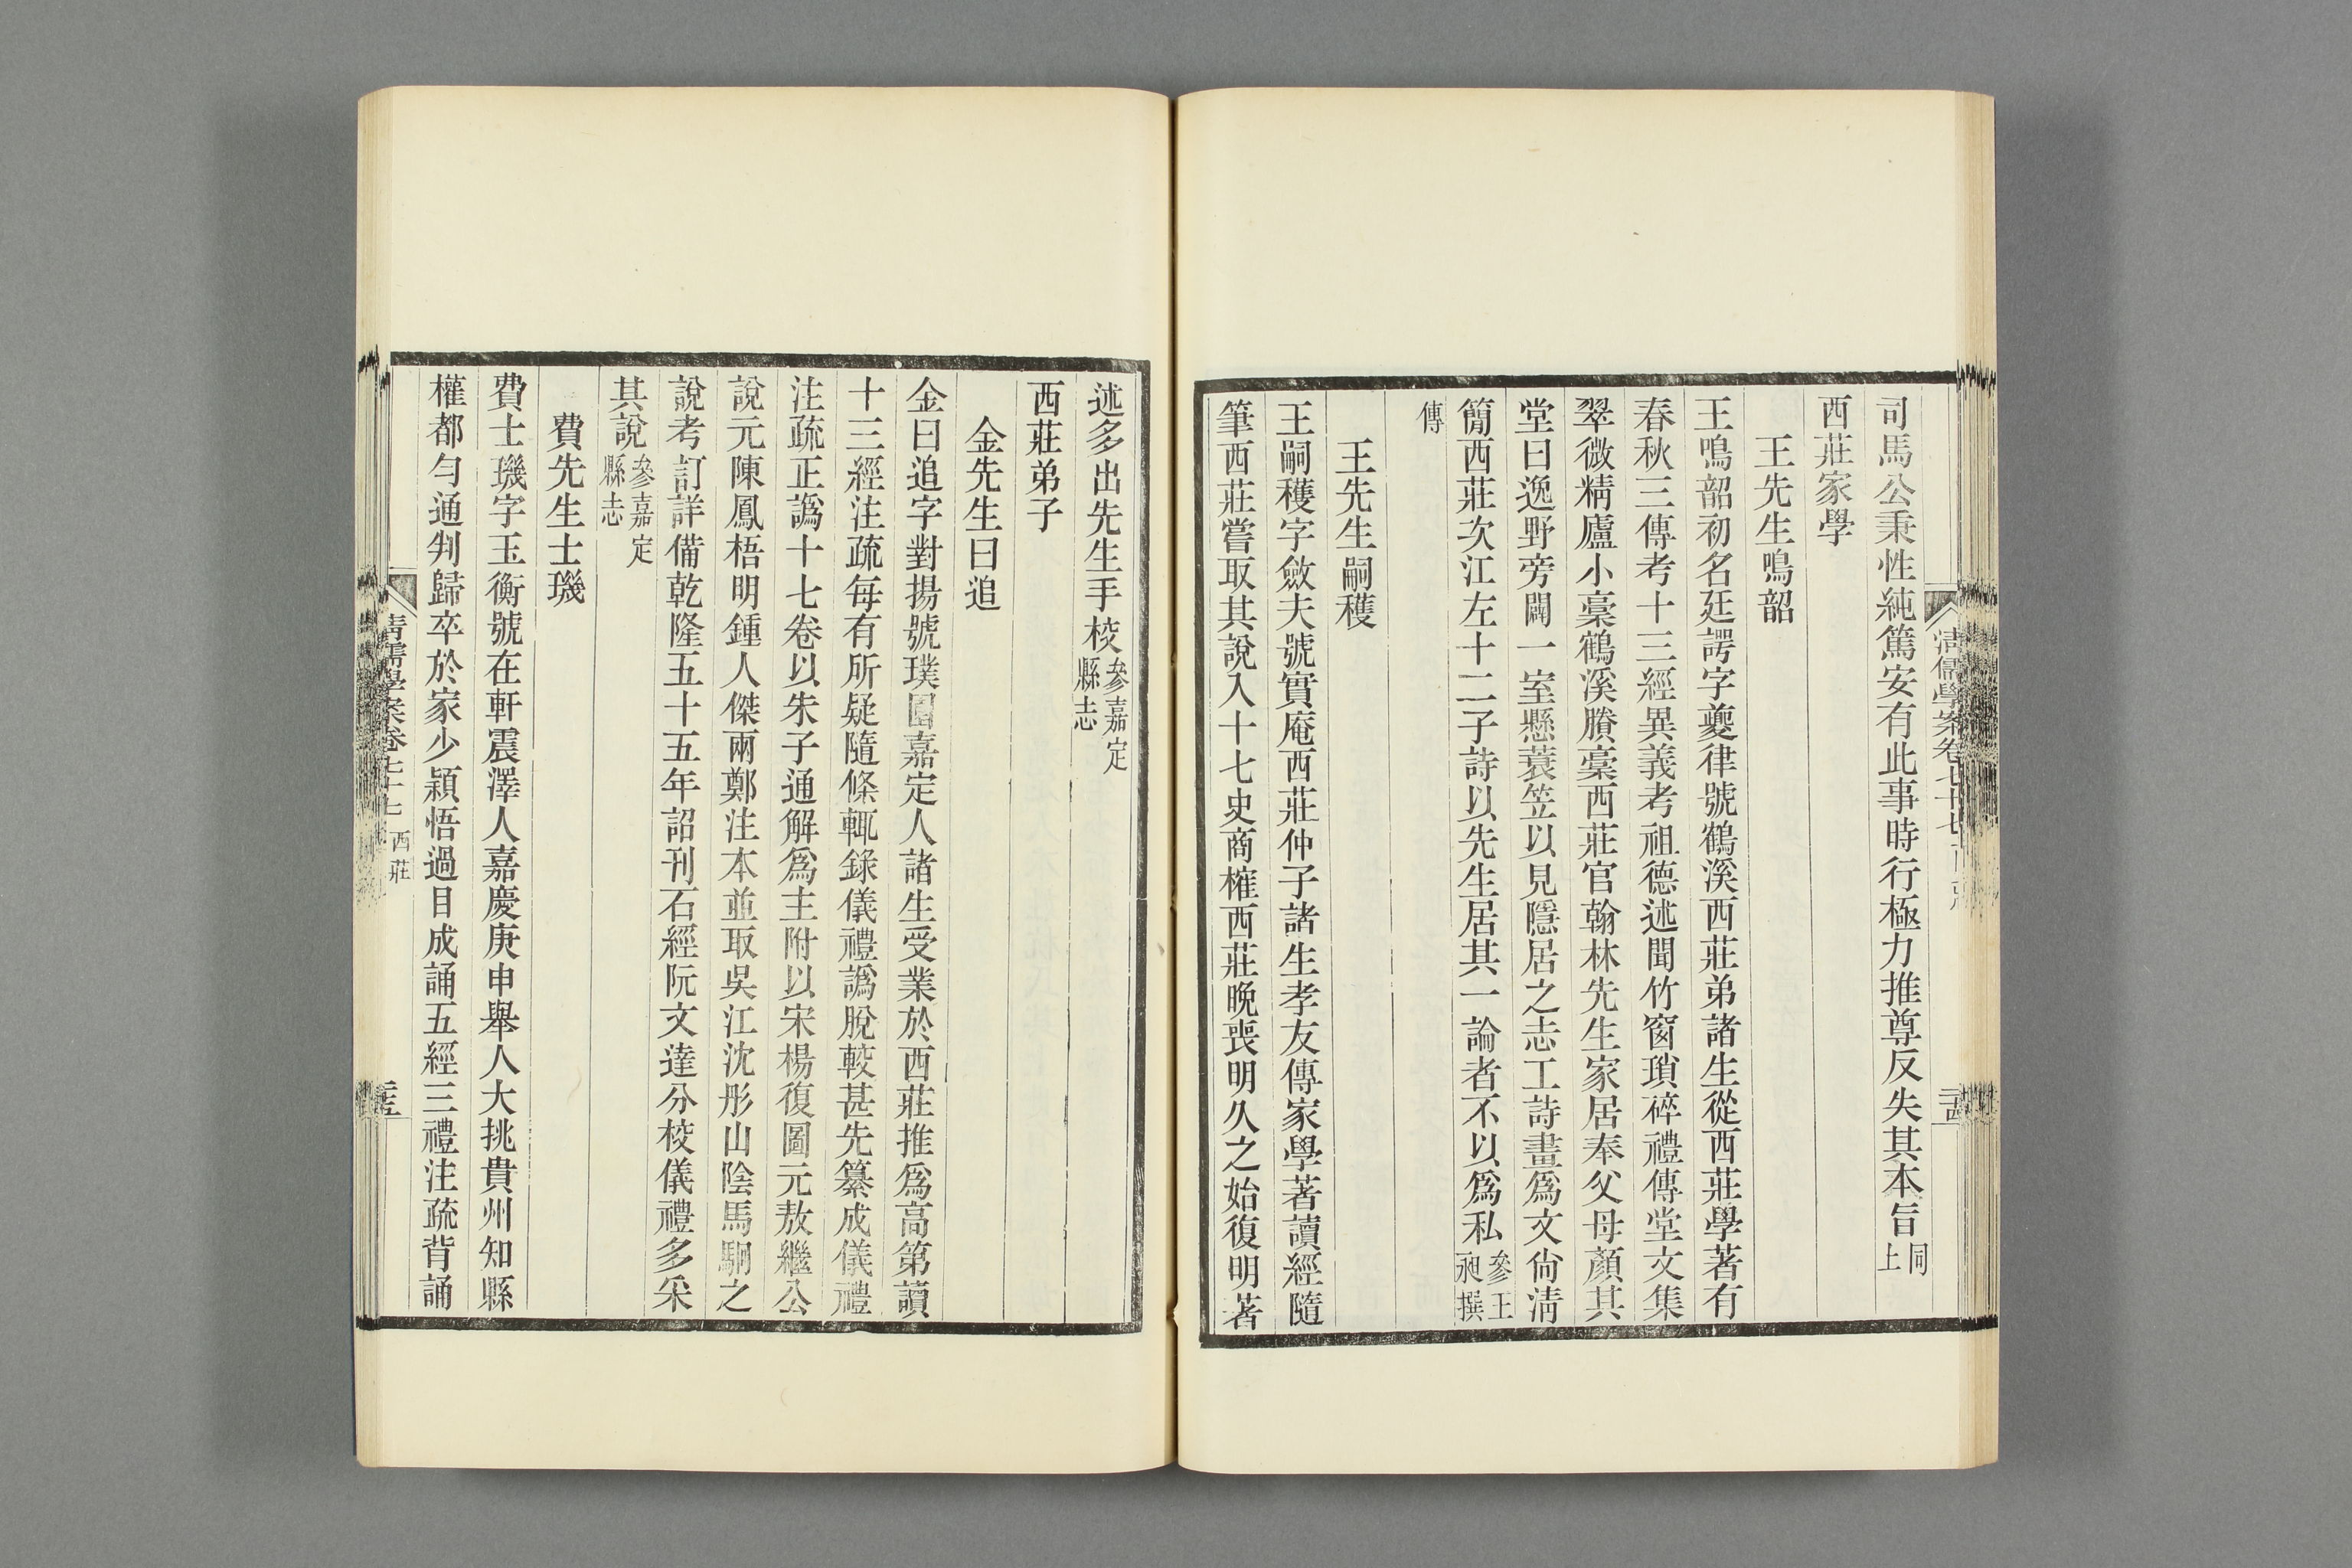 清儒學案卷七十七
司馬公秉性純篤安有此事時行極力推尊反失其本旨同上
西莊家學
王先生鳴韶
王鳴韶初名廷諤字夔律號鶴溪西莊弟諸生從西莊學著有
春秋三傳考十三經異義考祖德述聞竹窗瑣碎禮傳堂文集
翠微精廬小稾鶴溪賸稾西莊官翰林先生家居奉父母顏其
堂曰逸野旁闢一室懸蓑笠以見隱居之志工詩畫爲文尙淸
簡西莊次江左十二子詩以先生居其一論者不以爲私參王昶撰
傳
王先生嗣穫
王嗣穫字斂夫號實庵西莊仲子諸生孝友傳家學著讀經隨
筆西莊嘗取其說入十七史商榷西莊晚喪明久之始復明著
述多出先生手校參嘉定縣志
西莊弟子
金先生曰追
金曰追字對揚號璞園嘉定人諸生受業於西莊推爲高第讀
十三經注疏每有所疑隨條輒錄儀禮譌脫較甚先纂成儀禮
注疏正譌十七卷以朱子通解爲主附以宋楊復圖元敖繼公
說元陳鳳梧明鍾人傑兩鄭注本並取吳江沈彤山陰馬駉之
說考訂詳備乾隆五十五年詔刊石經阮文達分校儀禮多采
其說參嘉定縣志
費先生士璣
費士璣字玉衡號在軒震澤人嘉慶庚申舉人大挑貴州知縣
權都勻通判歸卒於家少穎悟過目成誦五經三禮注疏背誦
清儒學案卷七十七 西莊